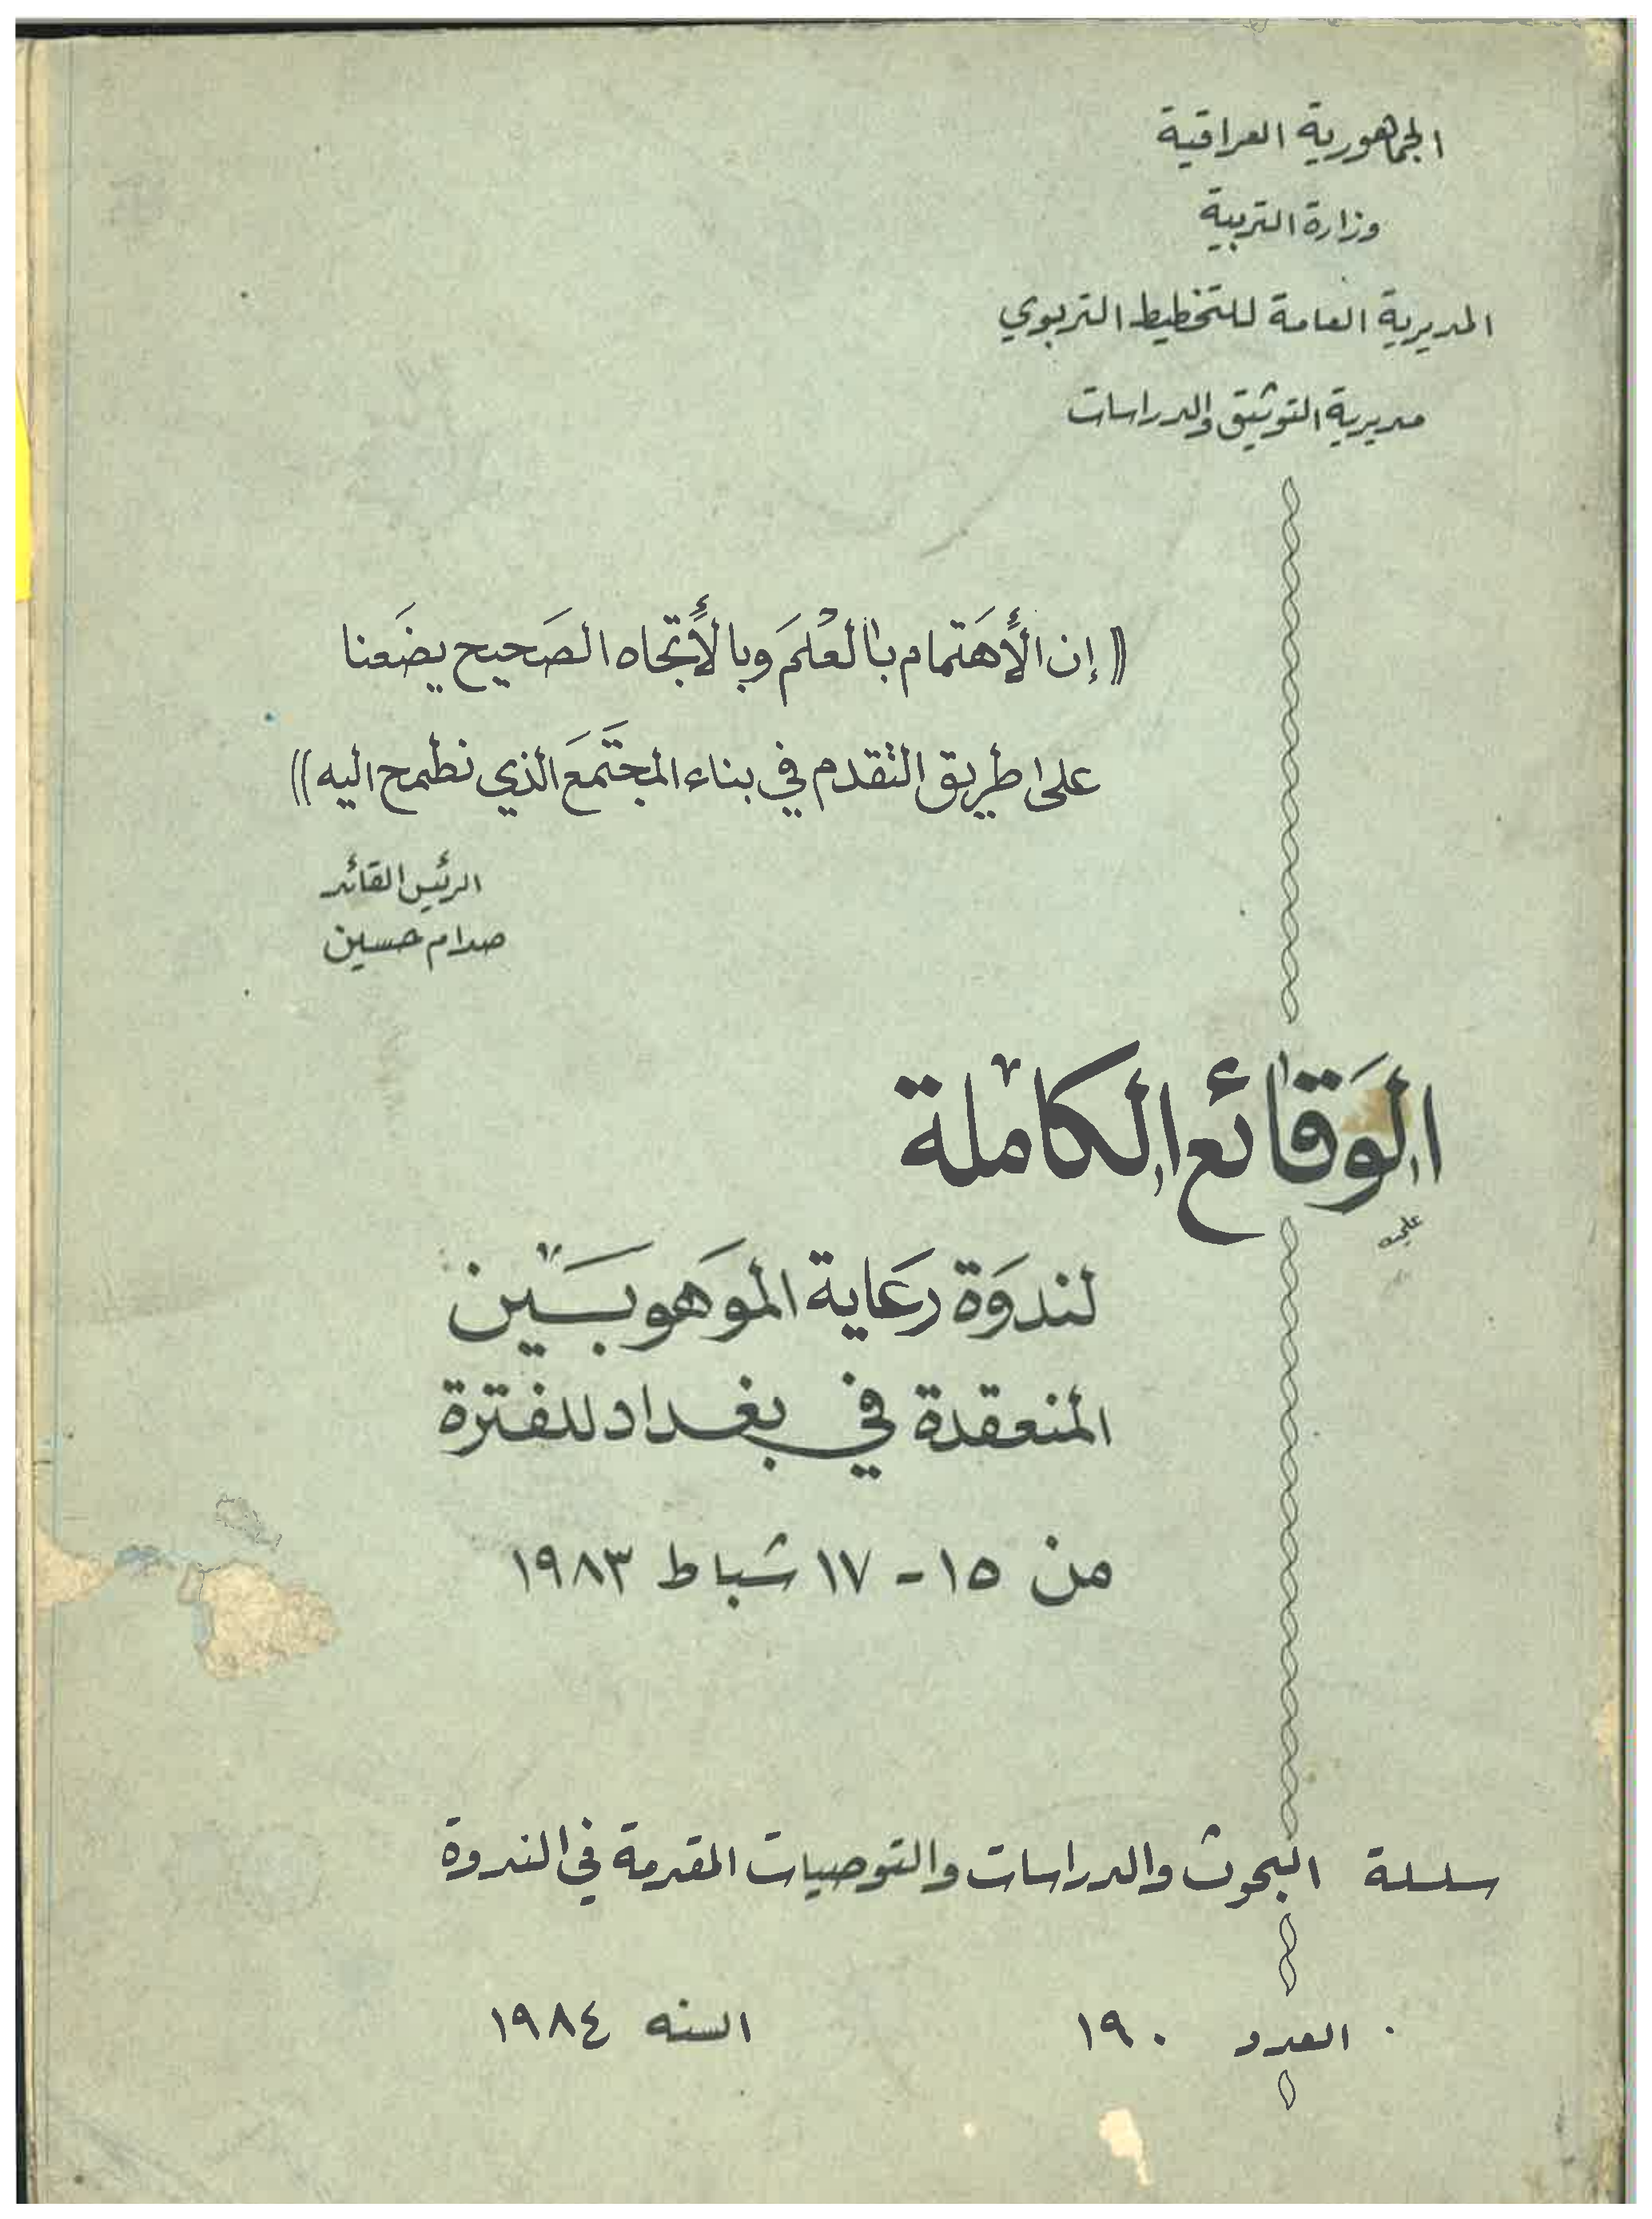 الجمهورية العراقية
وزارة التربية
المديرية العامة للتخطيط التربوي
مديرية التوثيق والدراسات
(( إن الأهتمام بالعلم وبالأتجاه الصحيح يضعنا
على طريق التقدم في بناء المجتمع الذي نطمح اليه ))
الرئيس القائد
صدام حسين
الوقائع الكاملة
لندوة رعاية الموهوبين
المنعقدة في بغداد للفترة
من ١٥ - ١٧ شباط ١٩٨٣
سلسلة البحوث والدراسات والتوصيات المقدمة في الندوة
العدد ١٩٠ السنه ١٩٨٤